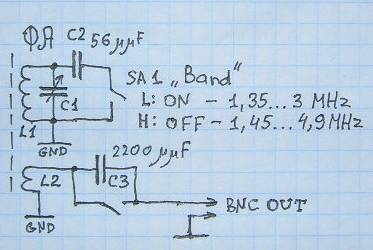 ФА C2 56µµF
SA1 „Band"
C1
L: ON – 1,35...3 MHz
H: OFF – 1,45...4,9MHz
L1
GND
2200µµF
L2
C3
BNC OUT
GND